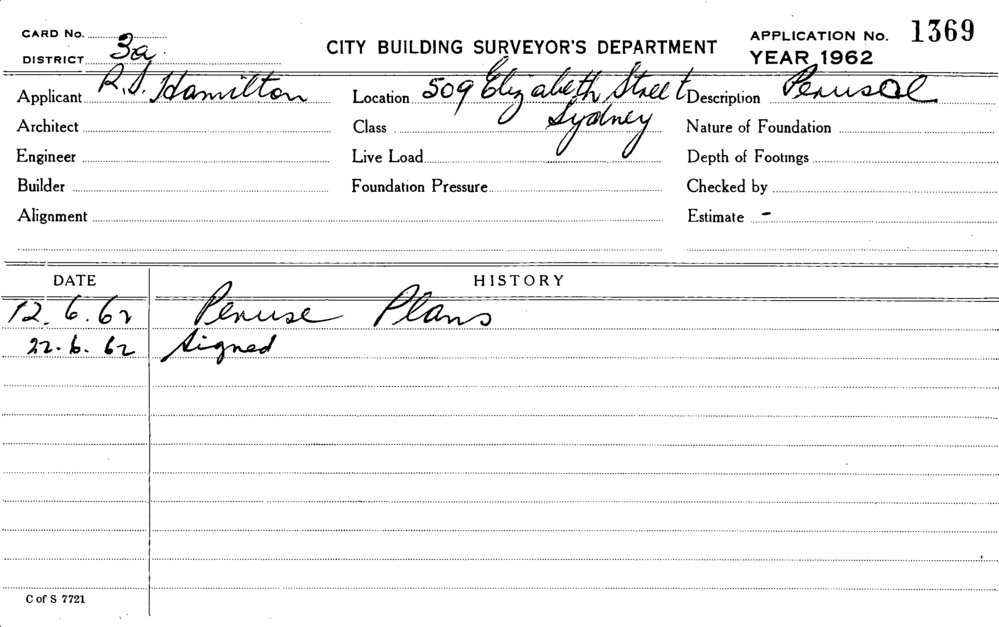 CARD No.
DISTRICT 3a.
CITY BUILDING SURVEYOR'S DEPARTMENT
APPLICATION No. 1369
YEAR 1962
Applicant R. S. Hamilton
Location 509 Elizabeth Street
Sydney
Description Perusal
Architect
Class
Nature of Foundation
Engineer
Live Load
Depth of Footings
Builder
Foundation Pressure
Checked by
Alignment
Estimate -
DATE HISTORY
12.6.62 Peruse Plans
22.6.62 Signed
C of S 7721